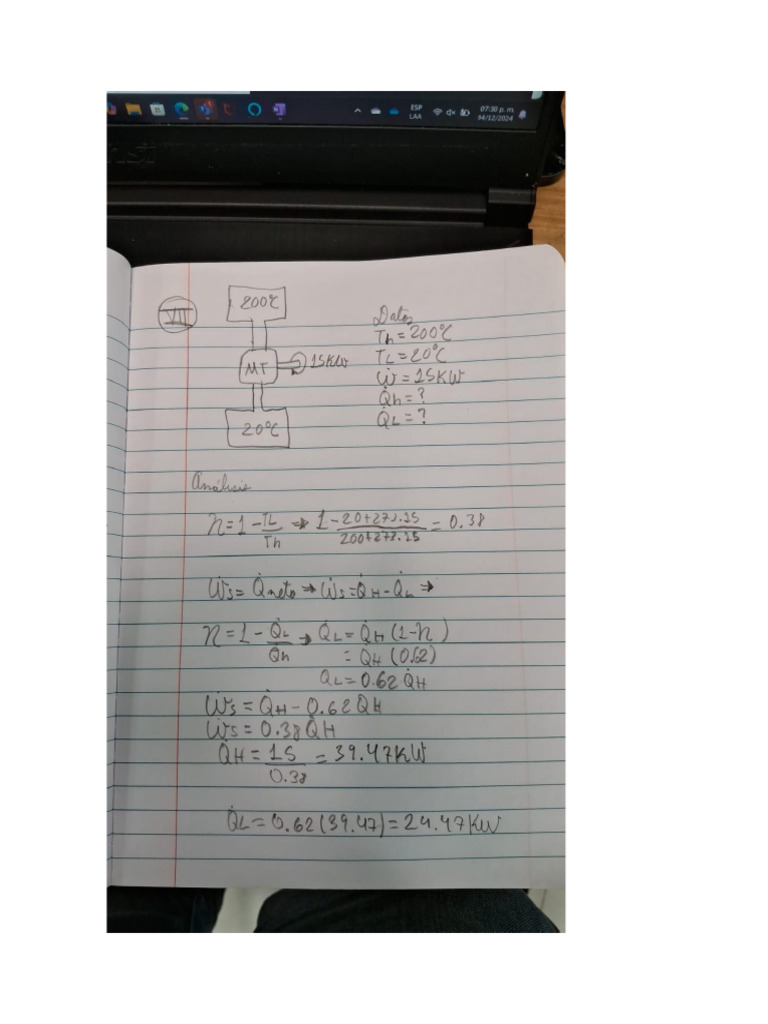 ESP
LAA
07:30 p. m.
14/12/2024
VII
200°C
MT
15KW
20°C
Datos
Th = 200°C
TL = 20°C
Ẇ = 15KW
Q̇h = ?
Q̇L = ?
Análisis
η = 1 - TL/Th → 1 - 20+273.15/200+273.15 = 0.38
Ẇs = Q̇neto → Ẇs = Q̇H - Q̇L →
η = 1 - Q̇L/Q̇h → Q̇L = Q̇H (1-η)
= Q̇H (0.62)
QL = 0.62 Q̇H
Ẇs = Q̇H - 0.62 QH
Ẇs = 0.38 Q̇H
Q̇H = 15/0.38 = 39.47KW
Q̇L = 0.62 (39.47) = 24.47KW